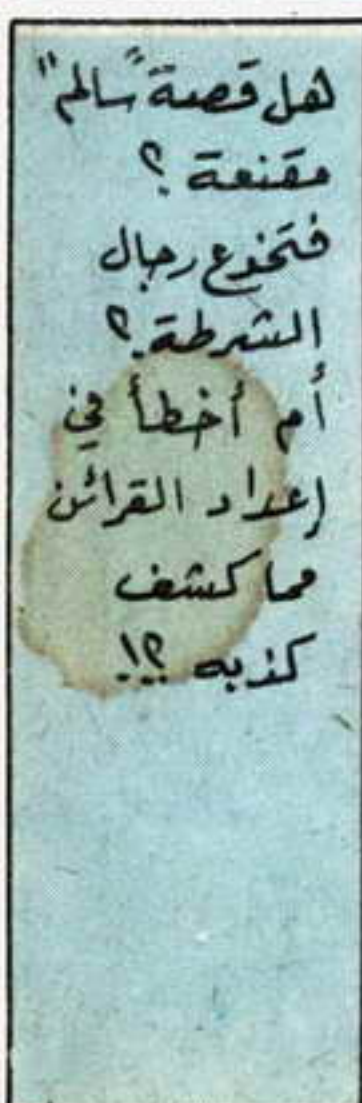 هل قصة "سالم"
مقنعة ؟
فتخدع رجال
الشرطة ؟
أم أخطأ في
إعداد القرائن
مما كشف
كذبه ؟!!